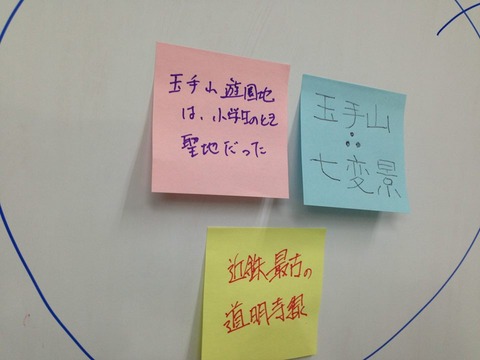 玉手山遊園地
は、小学生のとき
聖地だった
玉手山
七変景
近鉄最古の
道明寺線